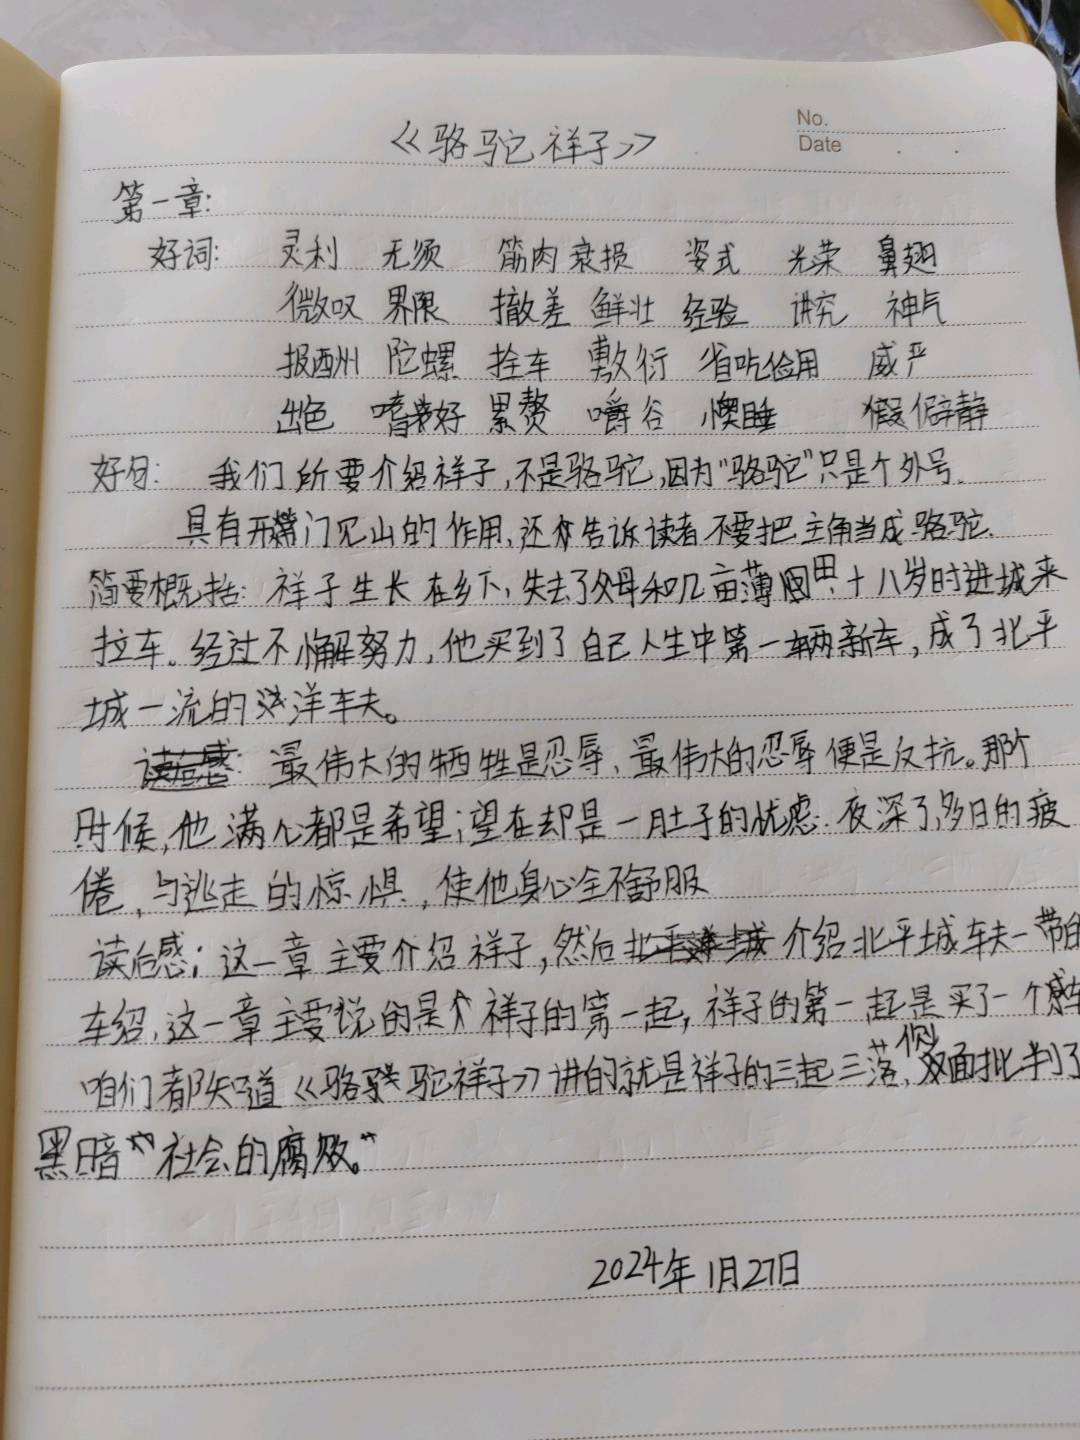 《骆驼祥子》
No.
Date
第一章:
好词: 灵利 无须 筋肉 衰损 姿式 光荣 鼻翅
微叹 界限 撤差 鲜壮 经验 讲究 神气
报酬 陀螺 拴车 敷衍 省吃俭用 威严
出色 嗜好 累赘 嚼谷 懊睡 假僻静
好句: 我们所要介绍祥子,不是骆驼,因为"骆驼"只是个外号.
具有开门见山的作用,还告诉读者不要把主角当成骆驼.
简要概括: 祥子生长在乡下,失去了父母和几亩薄田.十八岁时进城来
拉车。经过不懈努力,他买到了自己人生中第一辆新车,成了北平
城一流的洋车夫。
读后感: 最伟大的牺牲是忍辱、最伟大的忍辱便是反抗。那个
时候,他满心都是希望;望在却是一肚子的忧虑.夜深了,多日的疲
倦,与逃走的惊惧,使他身心全不舒服
读后感; 这一章主要介绍祥子,然后北平城 介绍北平城车夫一节的
车绍,这一章主要说的是个祥子的第一起,祥子的第一起是买了一个车
咱们都知道《骆驼祥子》讲的就是祥子的三起三落,侧面批判了
黑暗"社会的腐败。"
2024年1月27日